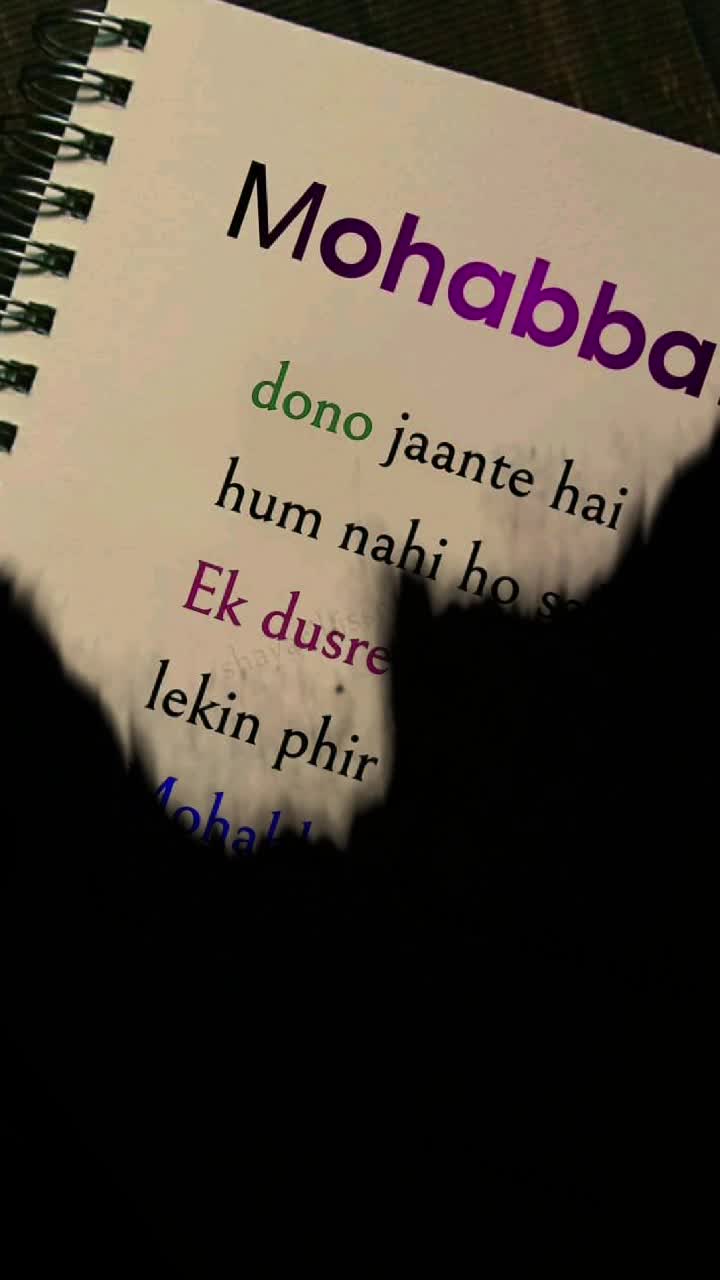 Mohabba
dono jaante hai
hum nahi ho
Ek dusre
lekin phir